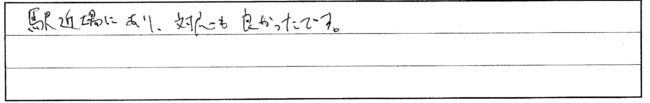 駅近場にあり、対応も良かったです。